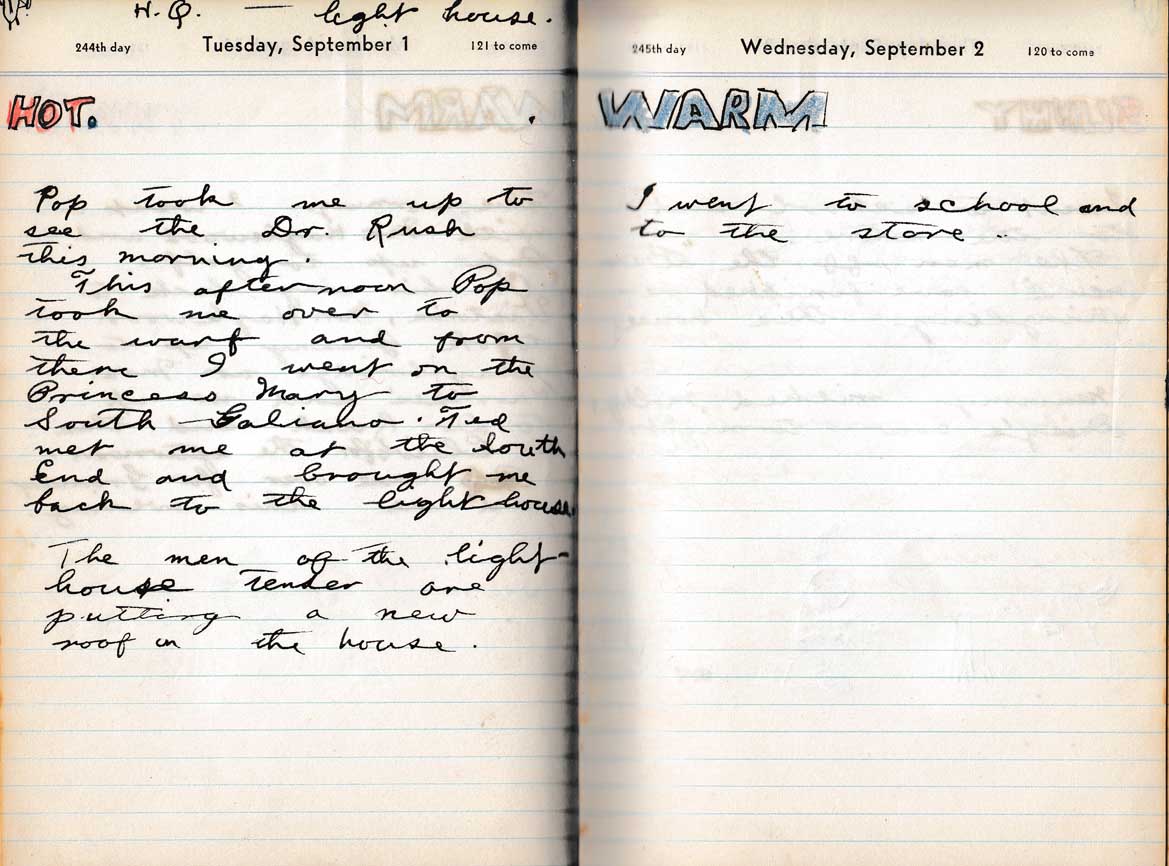 H.Q. — light house.
244th day Tuesday, September 1 121 to come
HOT.
Pop took me up to
see the Dr. Rush
this morning.
This afternoon Pop
took me over to
the warf and from
there I went on the
Princess Mary to
South Galiano. Ted
met me at the South
End and brought me
back to the light house.
The men of the light-
house tender are
putting a new
roof on the house.
245th day Wednesday, September 2 120 to come
WARM
I went to school and
to the store..